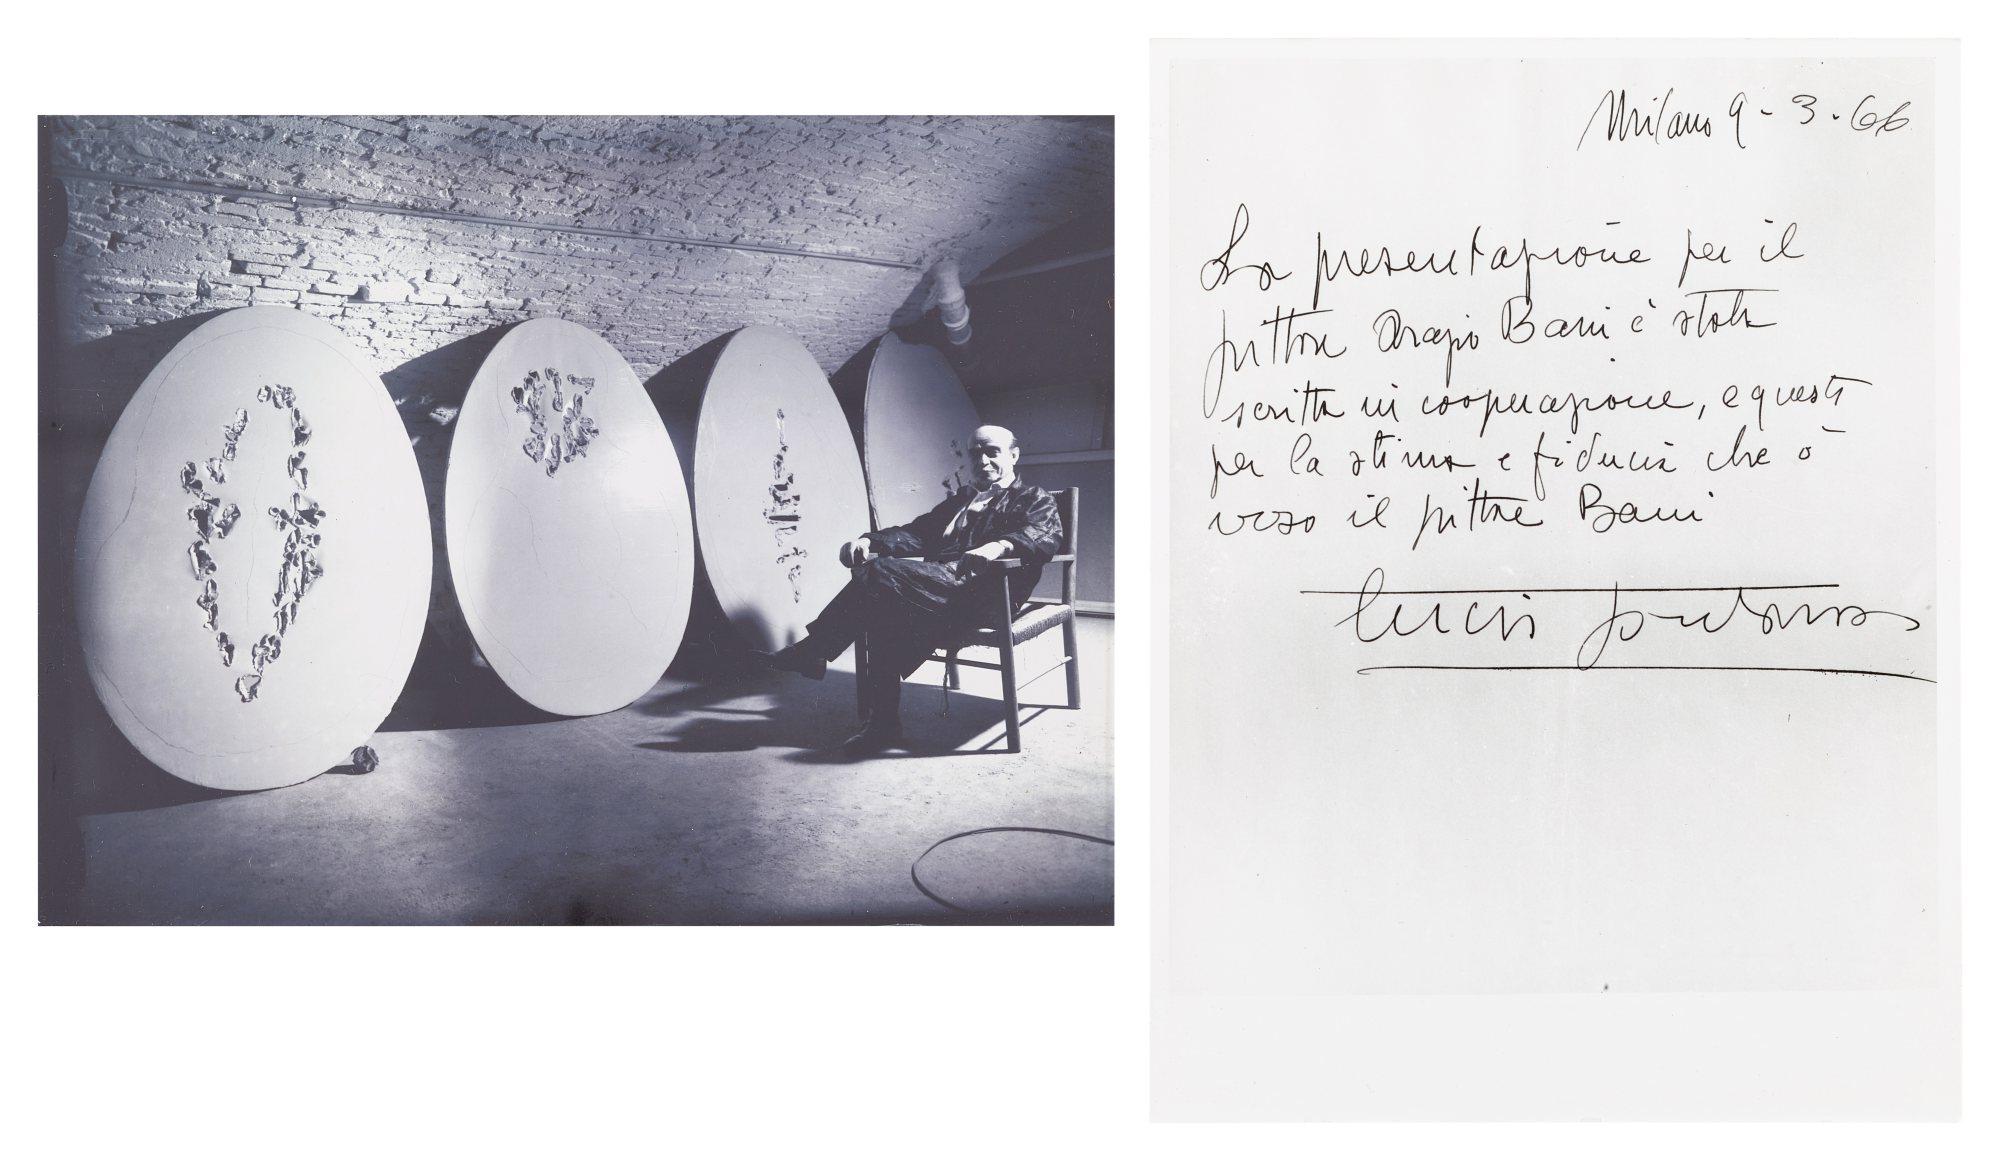 Milano 9 - 3 - 66
La presentazione per il
pittore Orazio Bani è stata
scritta in cooperazione, e questo
per la stima e fiducia che ò
verso il pittore Bani
Lucio Fontana